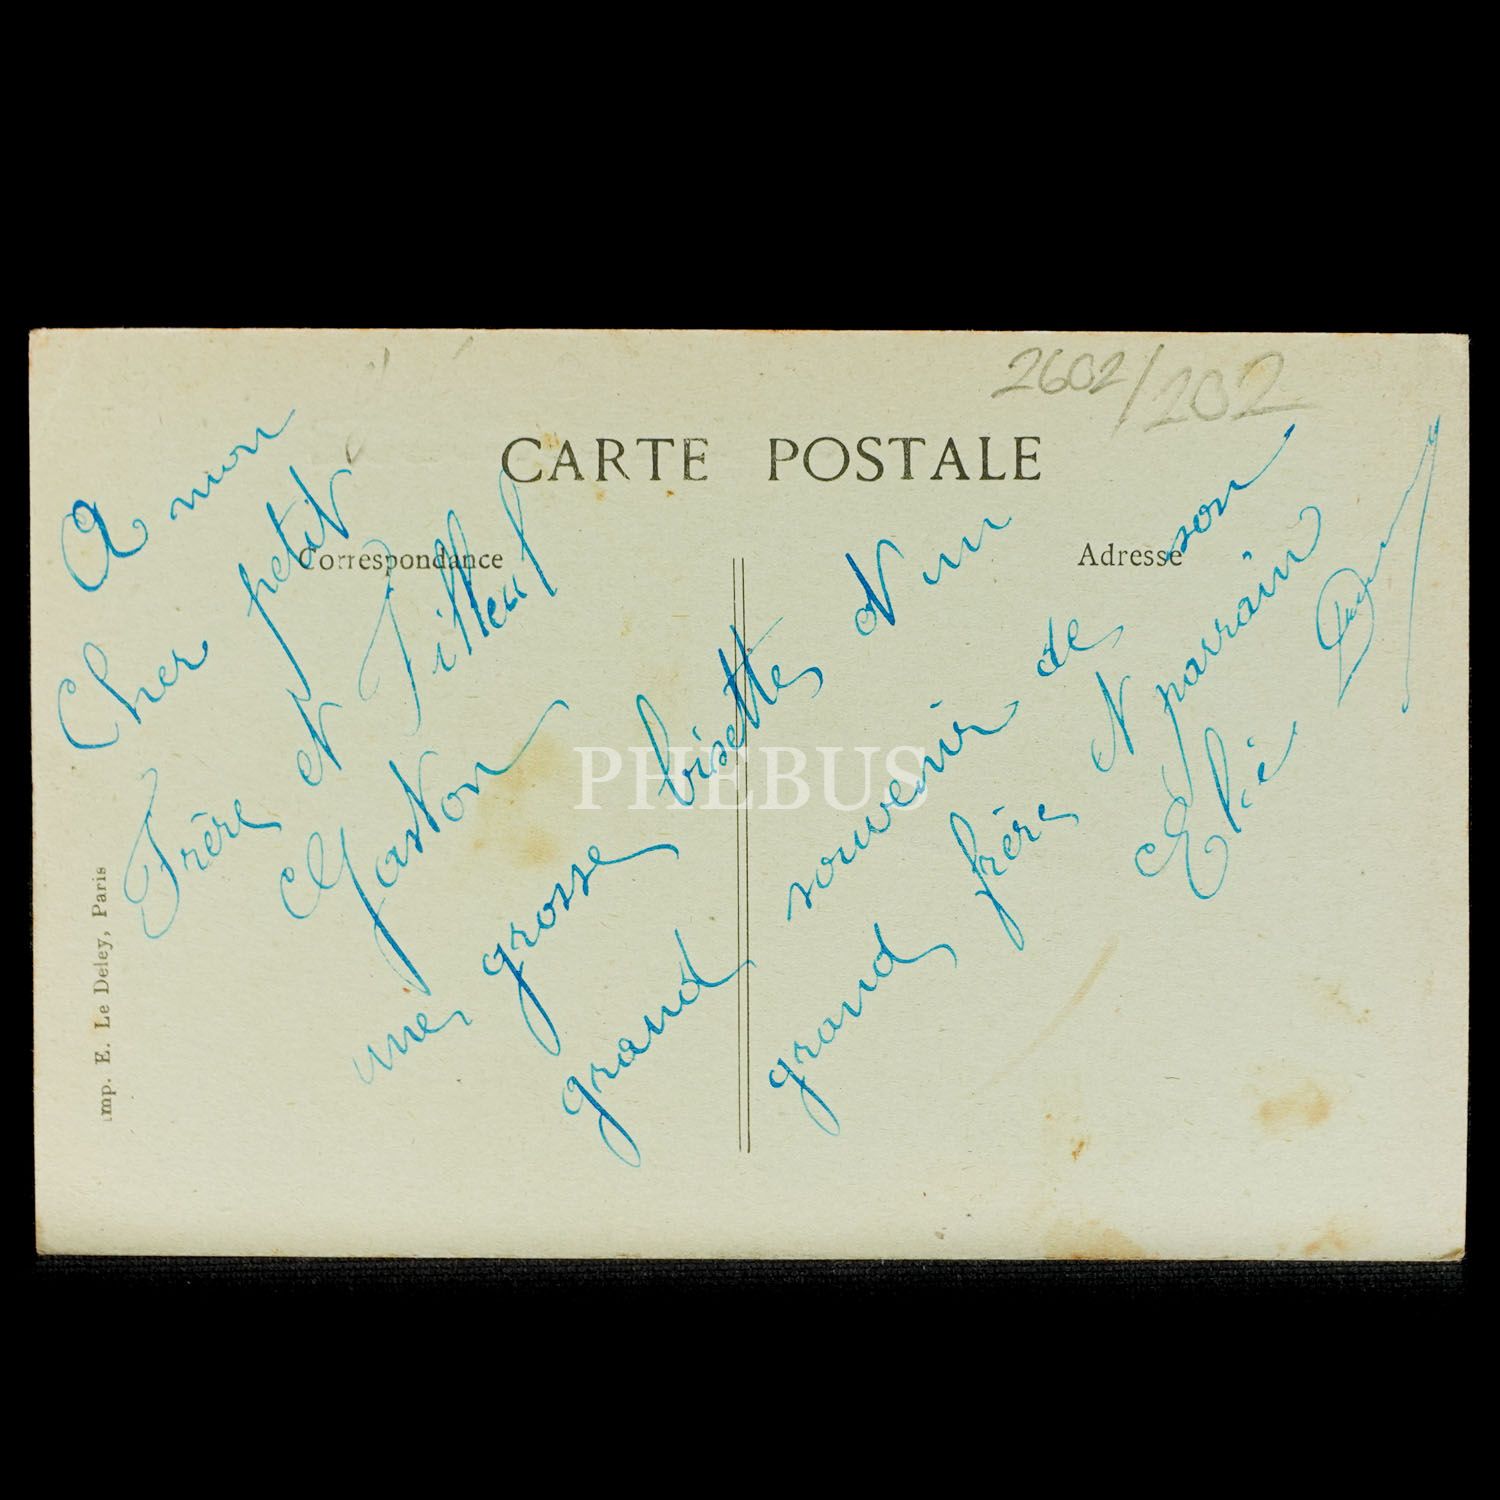 2602/202
CARTE POSTALE
Correspondance
Adresse
A mon
Cher petit
Frère et Filleul
Gaston
une grosse bisettes d'un
grand souvenir de son
grand frère et parrain
Elie
PHEBUS
Imp. E. Le Deley, Paris